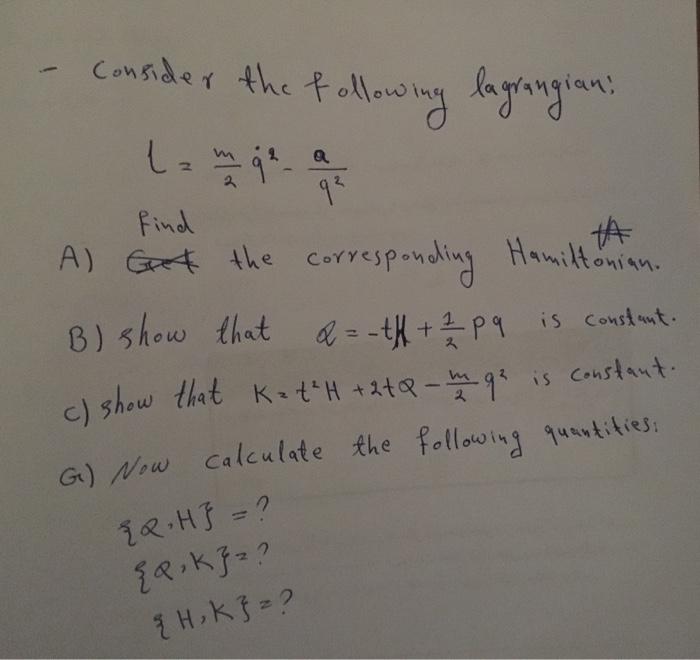 - Consider the following lagrangian:
L = m/2 q̇² - a/q²
A) Find the corresponding Hamiltonian.
B) show that Q = -tH + 1/2 pq is constant.
C) show that K = t²H + 2tQ - m/2 q² is constant.
G) Now calculate the following quantities:
{Q,H} = ?
{Q,K} = ?
{H,K} = ?